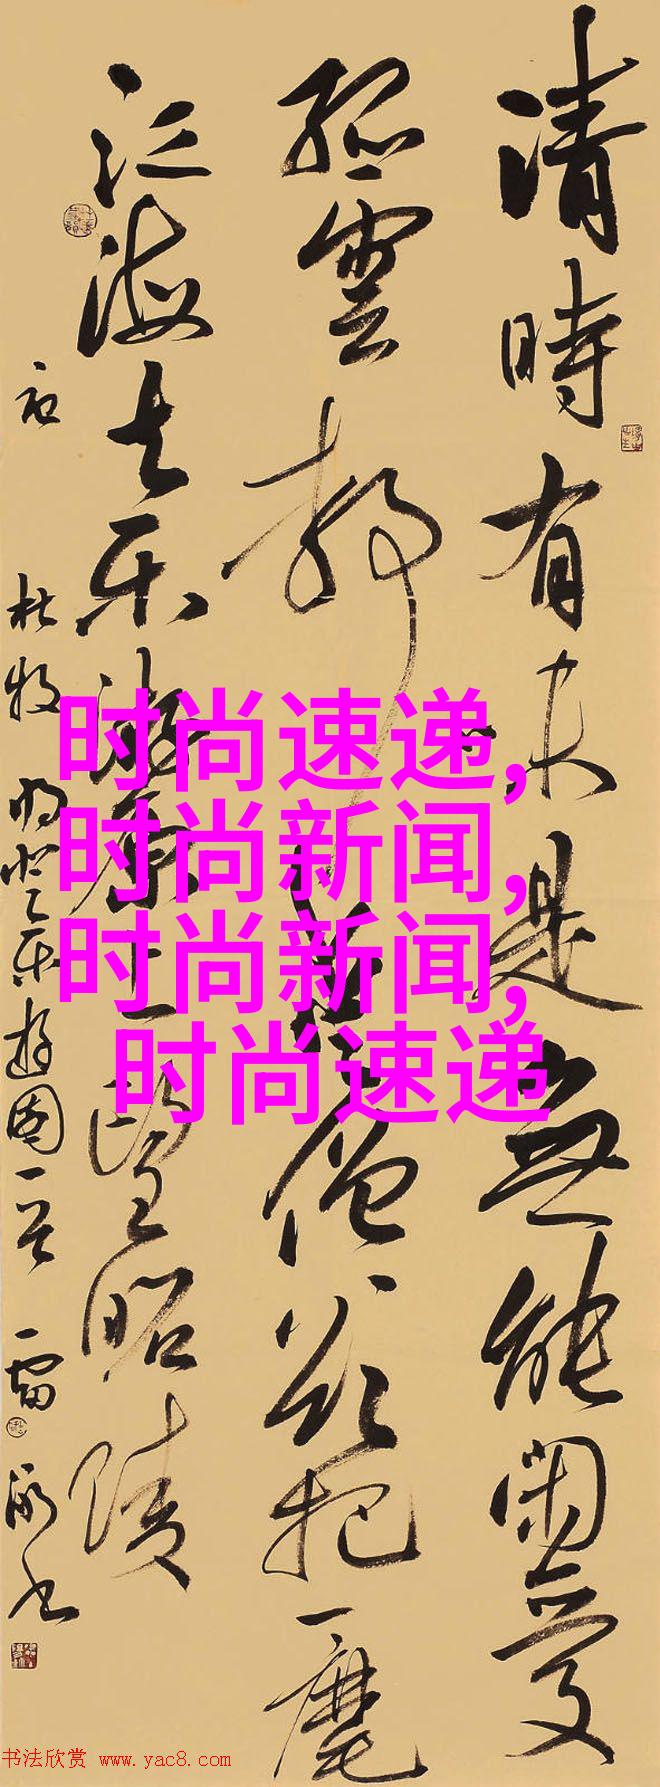 清時有味是無能閑愛
孤雲静愛僧欲把一麾
江海去乐游原上望昭陵
杜牧 登乐游
时尚速递,
时尚新闻,
时尚新闻,
时尚速递
书法欣赏 www.yac8.com